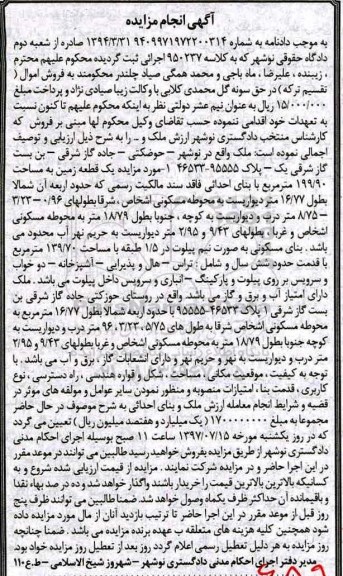 آگهی انجام مزایده
به موجب دادنامه به شماره ۹۴۰۹۹۷۱۹۷۲۲۰۰۳۱۴ ۱۳۹۴/۳/۳۱ صادره از شعبه دوم
دادگاه حقوقی نوشهر که به کلاسه ۹۵۰۲۳۷ اجرائی ثبت گردیده محکوم علیهم محترم
، زیبنده ، علیرضا ، ماه باجی و محمد همگی صیاد چلندر محکومند به فروش اموال (
تقسیم ترکه ) در حق سونه گل محمدی کلایی با وکالت زیبا صیادی نژاد و پرداخت مبلغ
۱۵/۰۰۰/۰۰۰ ریال به عنوان نیم عشر دولتی نظر به اینکه محکوم علیهم تا کنون نسبت
به تعهدات خود اقدامی ننموده حسب تقاضای وکیل محکوم لها مبنی بر فروش که
کارشناس منتخب دادگستری نوشهر ارزش ملک و ... را به شرح ذیل ارزیابی و توصیف
اجمالی نموده است: ملک واقع در نوشهر – حوضکتی – جاده گاز شرقی – بن بست
گاز شرقی یک – پلاک ۹۵۵۵۵-۴۶۵۳۳ ۱-مورد مزایده یک قطعه زمین به مساحت
۱۹۹/۹۰ مترمربع با بنای احداثی فاقد سند مالکیت رسمی که حدود اربعه آن شمالا
بطول ۱۶/۷۷ متر دیواریست به محوطه مسکونی اشخاص ، شرقا بطولهای ۰/۹۶ – ۳/۲۳
– ۸/۷۵ متر درب و دیواریست به کوچه ، جنوبا بطول ۱۸/۷۹ متر به محوطه مسکونی
اشخاص و غربا ، بطولهای ۹/۴۳ و ۲/۹۵ متر دیواریست به حریم نهر آب محدود می
باشد . بنای مسکونی به صورت نیم پیلوت در ۱/۵ طبقه با مساحت ۱۳۹/۷۰ مترمربع
با قدمت حدود شش سال و شامل : تراس – هال و پذیرایی – آشپزخانه – دو خواب
و سرویس بر روی پیلوت و پارکینگ – انباری و سرویس داخل پیلوت می باشد . ملک
دارای امتیاز آب و برق و گاز می باشد. واقع در روستای حوزکتی جاده گاز شرقی بن
بست گاز شرقی ۱ پلاک ۴۶۵۳۳-۹۵۵۵۵ با حدود اربعه شمالا بطول ۱۶/۷۷ مترمربع به
محوطه مسکونی اشخاص شرقا به طول های ۵/۷۵ ،۳/۲۳ ،۹۶ متر درب و دیواریست به
کوچه جنوبا بطول ۱۸/۷۹ متر به محوطه مسکونی اشخاص و غربا بطولهای ۹/۴۳ و ۲/۹۵
متر درب و دیواریست به نهر و حریم نهر و دارای انشعابات گاز ، برق و آب می باشد . با
توجه به کیفیت ، موقعیت مکانی ، مساحت ، شکل و قواره هندسی ، راه دسترسی ، نوع
کاربری ، قدمت بنا ، امتیازات منصوبه و منظور نمودن سایر عوامل و مولفه های موثر در
قضیه و شرایط انجام معامله ارزش ملک و بنای احداثی به شرح موصوف در حال حاضر
مجموعا به مبلغ ۱۷۰۰۰۰۰۰۰۰ ( یک میلیارد و هفتصد میلیون ریال ) تعیین می گردد
که در روز یکشنبه مورخه ۱۳۹۷/۰۷/۱۵ ساعت ۱۱ صبح بوسیله اجرای احکام مدنی
دادگستری نوشهر از طریق مزایده بفروش خواهد رسید طالبین می توانند در موعد مقرر
در این اجرا حاضر و در مزایده شرکت نمایند . مزایده از قیمت ارزیابی شده شروع و به
کسانیکه بالاترین قیمت را خریدار باشند واگذار خواهد شد و ده در صد بهاء نقدا
و باقیمانده آن حداکثر ظرف یکماه وصول خواهد شد. ضمنا طالبین می توانند ظرف پنج
روز قبل از موعد مقرر در این اجرا حاضر تا ترتیب بازدید آنان از مال مورد مزایده داده
شود همچنین کلیه هزینه های متعلقه ب عهده برنده مزایده می باشد . ضمنا چنانچه
روز مزایده به هر دلیل تعطیل رسمی اعلام گردد روز بعد از تعطیل روز مزایده خواد بود.
مدیر دفتر اجرای احکام مدنی دادگستری نوشهر – شهروز شیخ الاسلامی – ط.ع-۱۱۰